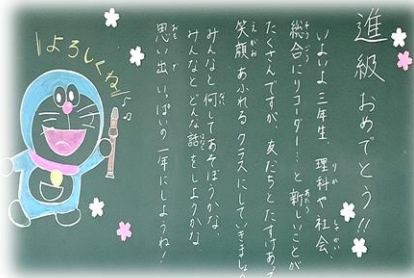 進級おめでとう!!
いよいよ三年生、理科や社会、
総合にリコーダー…と新しいことが
たくさんですが、友だちとたすけあって
笑顔あふれるクラスにしていきましょう
みんなと何してあそぼうかな、
みんなとどんな話をしようかな
思い出いっぱいの一年にしようね!
よろしくね